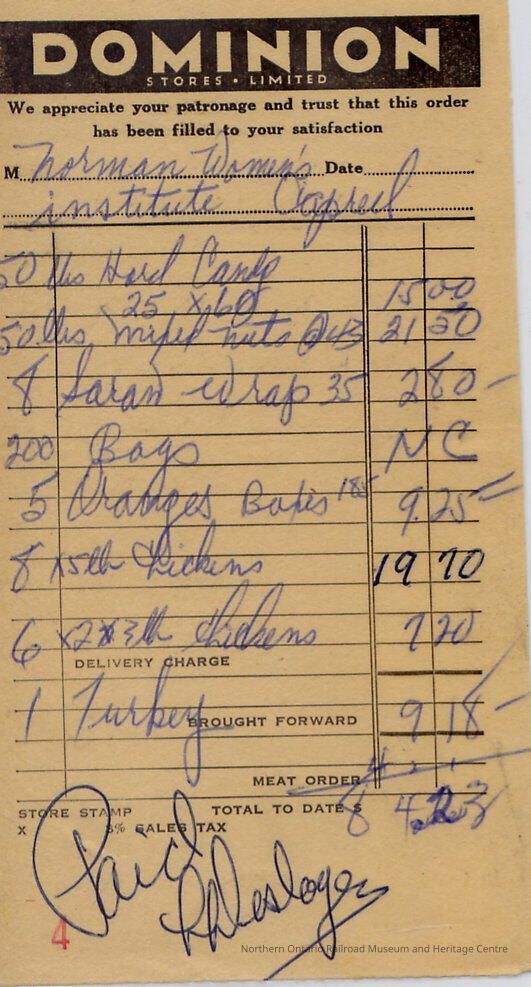 DOMINION
STORES • LIMITED
We appreciate your patronage and trust that this order
has been filled to your satisfaction
M Norman Women's Date
institute Capreol
50 lbs Hard Candy
25 x 60 15 00
50 lbs mixed nuts @ 43 21 50
8 Saran Wrap 35 2 80 -
200 Bags N C
5 Oranges Boxes 185 9.25
8 x 5 lb Chickens 19 70
6 x 2 x 3 lb Chickens 7 20
DELIVERY CHARGE
1 Turkey BROUGHT FORWARD 9 18 -
MEAT ORDER
STORE STAMP TOTAL TO DATE $ 8 4
X 3% SALES TAX
Paid
4
Northern Ontario Railroad Museum and Heritage Centre